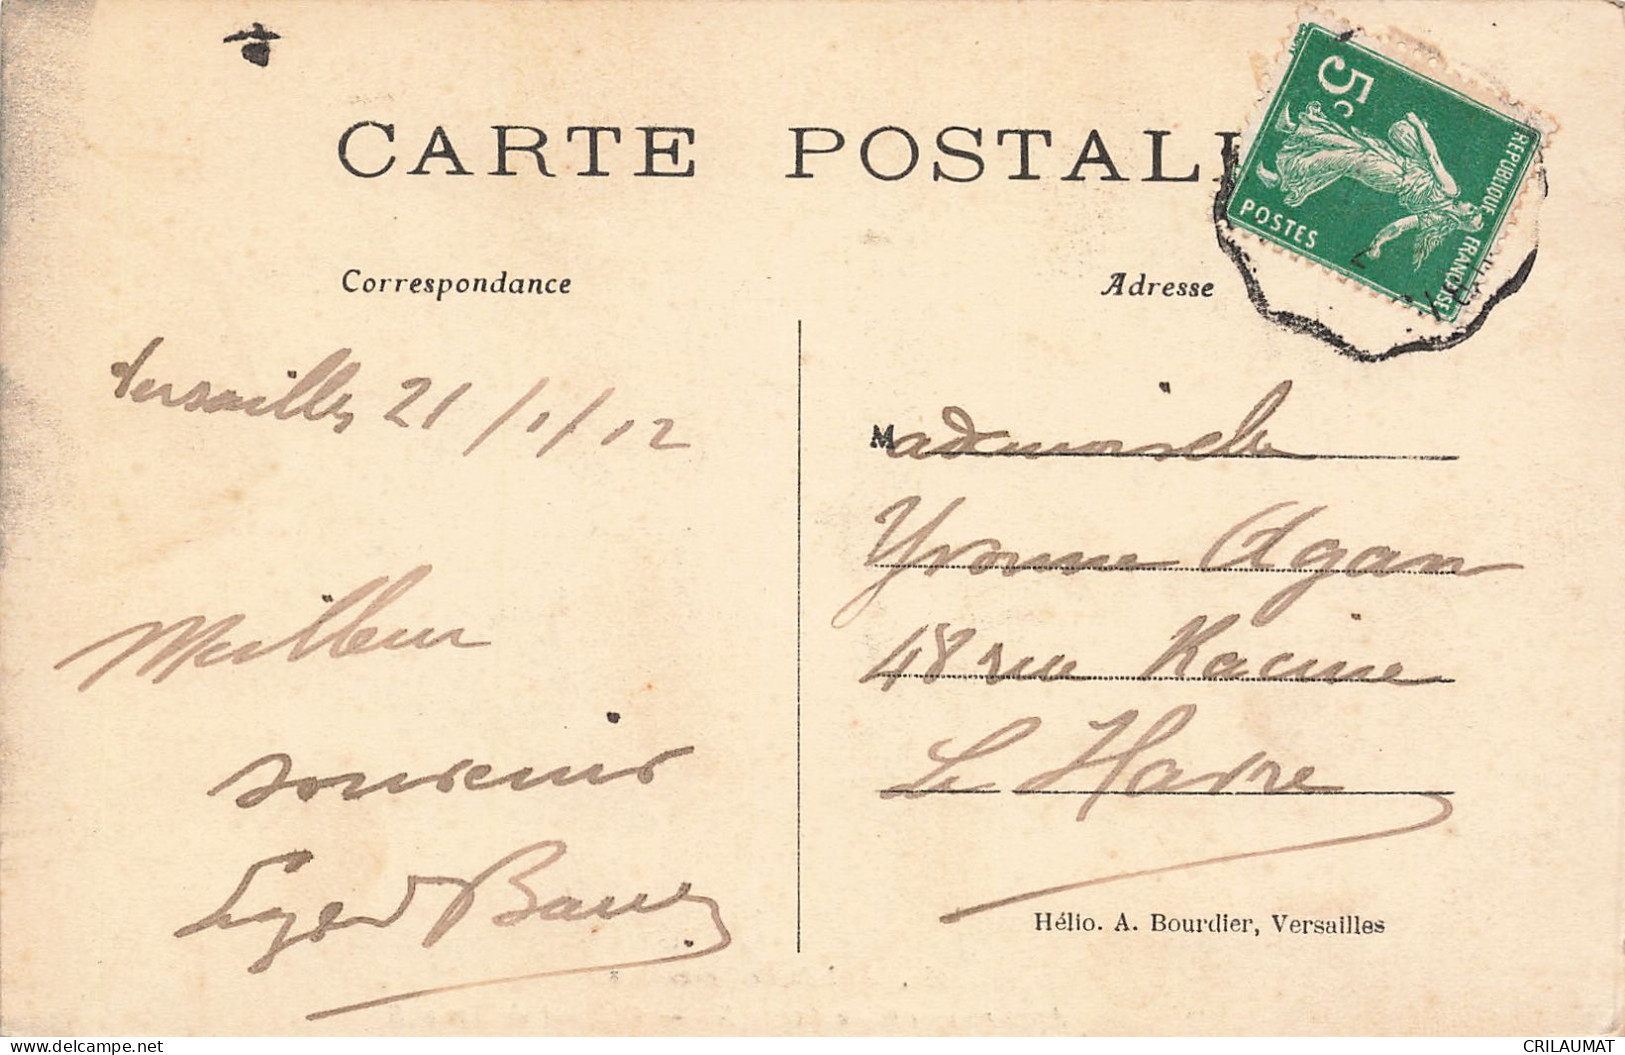 CARTE POSTAL
5c
REPUBLIQUE FRANCAISE
POSTES
Correspondance
Adresse
Versailles 21/1/12
Meilleur
souvenir
Mademoiselle
Yvonne Agan
48 rue Racine
Le Havre
Hélio. A. Bourdier, Versailles
delcampe.net
CRILAUMAT